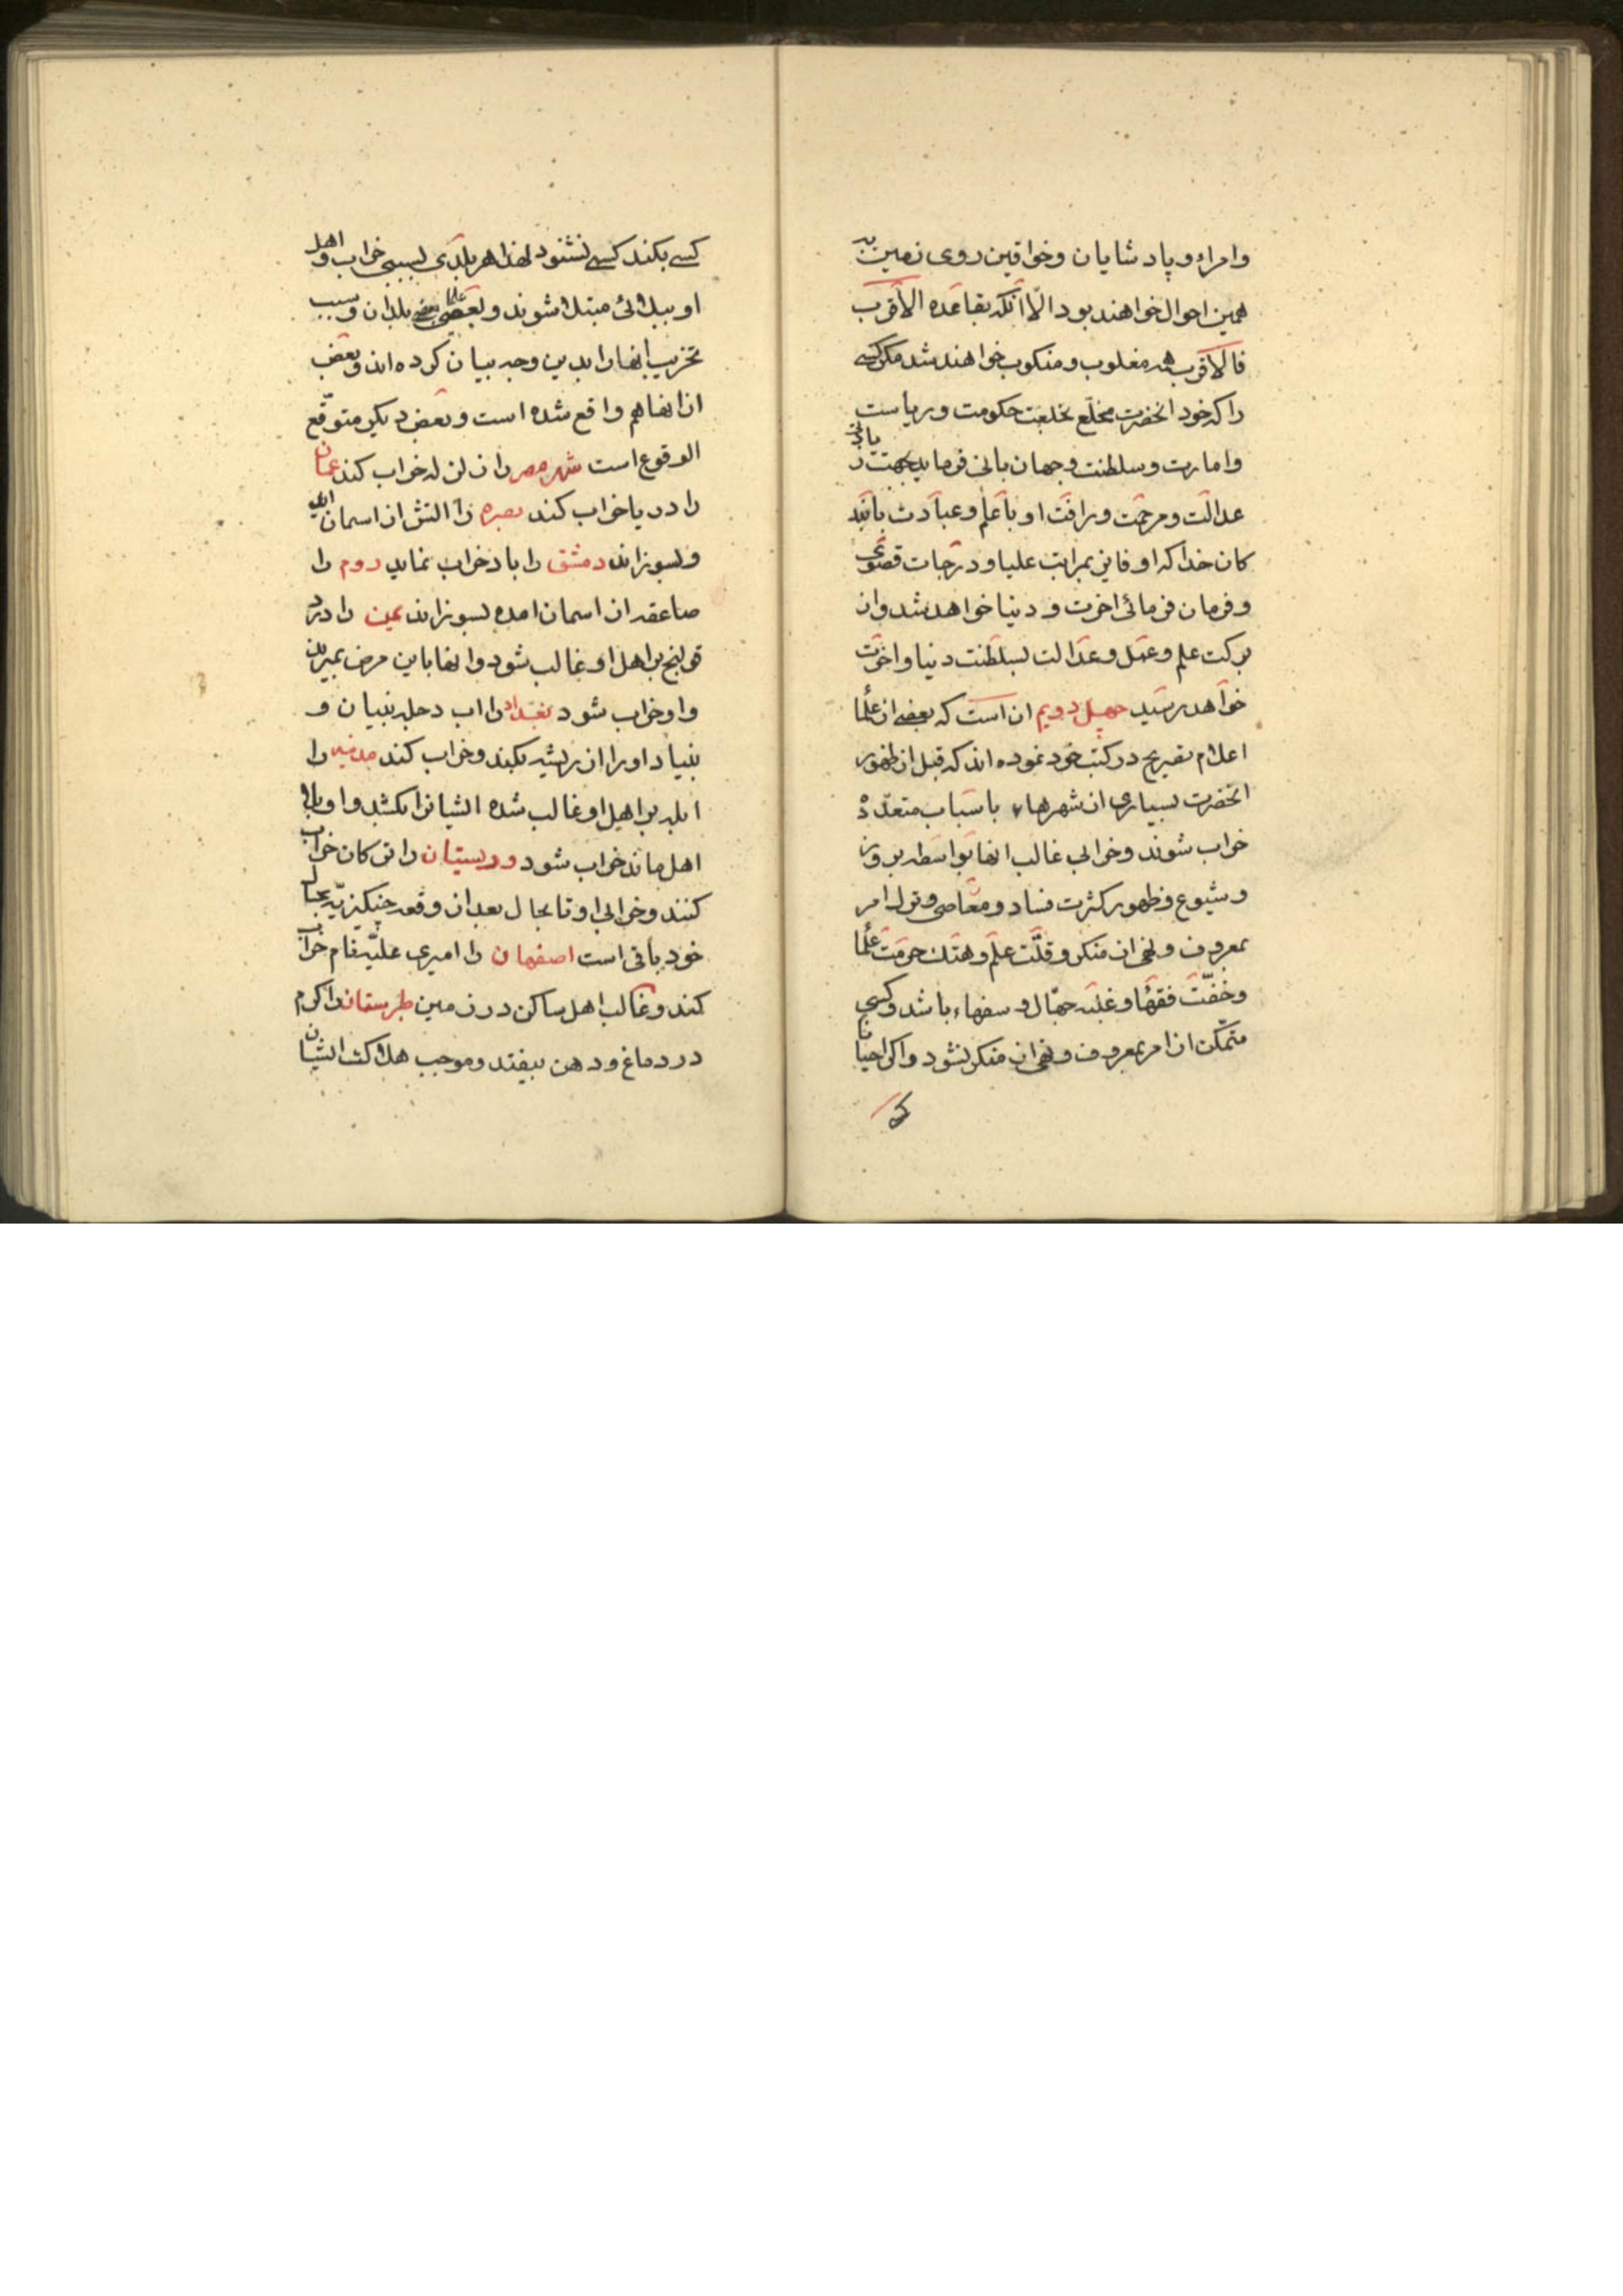 وامراء و پادشایان وخواقین روی زمین به
همین احوال خواهند بود الّا آنکه بقاعده الأقرب
فالأقرب همه مغلوب و منکوب خواهند شد مگر کسی
را که خود انحضرت مخلّع بخلعت حکومت و ریاست
وامارت وسلطنت وجهان بانی فرماید بجهت
عدالت ومرحمت ورافت او با علم وعبادت
کان خدا که او بمراتب علیا ودرجات قصوی
وفرمان فرمائی اخرت و دنیا خواهد شد وان
برکت علم وعمل وعدالت بسلطنت دنیا واخرت
خواهد رسید چهل دویم ان است که بعضی از علما
اعلام تصریح در کتب خود نموده اند که قبل از ظهور
انحضرت بسیاری از شهرهاء باسباب متعدّده
خراب شوند وخرابی غالب انها بواسطه بروز
وشیوع وظهور کثرت فساد ومعاصی وترک امر
بمعروف ونهی از منکر وقلّت علم وهتک حرمت علما
وخفّت فقها وغلبه جهّال وسفهاء باشد وکسی
متمکّن از امر بمعروف ونهی از منکر نشود واکر احیانا
کسی بکند کسی نشنود لهذا هر بلدی بسببی خراب واهل
او ببلائی مبتلا شوند وبعضی علما بعضی بلدان وسبب
تخریب انها را بدین وجه بیان کرده اند وبعض
از انها هم واقع شده است وبعض دیکر متوقّع
الوقوع است شهر مصر را زلزله خراب کند عمان
را دریا خراب کند بصره را اتش از اسمان
وبسوزاند دمشق را باد خراب نماید روم را
صاعقه از اسمان امده بسوزاند یمن را درد
قولنج بر اهل او غالب شود وانها باین مرض بمیرند
واو خراب شود بغداد را اب دجله بنیان و
بنیاد او را از ریشه بکند وخراب کند مدینه را
ابله بر اهل او غالب شده ایشانرا بکشد واو بی
اهل ماند خراب شود و سیستان را ترکان خراب
کنند وخرابی او تا بحال بعد از وقعه چنکیزیّه بحال
خود باقی است اصفهان را امیری علیّه نام خراب
کند وغالب اهل ساکن در زمین طبرستان را کرم
در دماغ ودهن بیفتد وموجب هلاکت ایشان